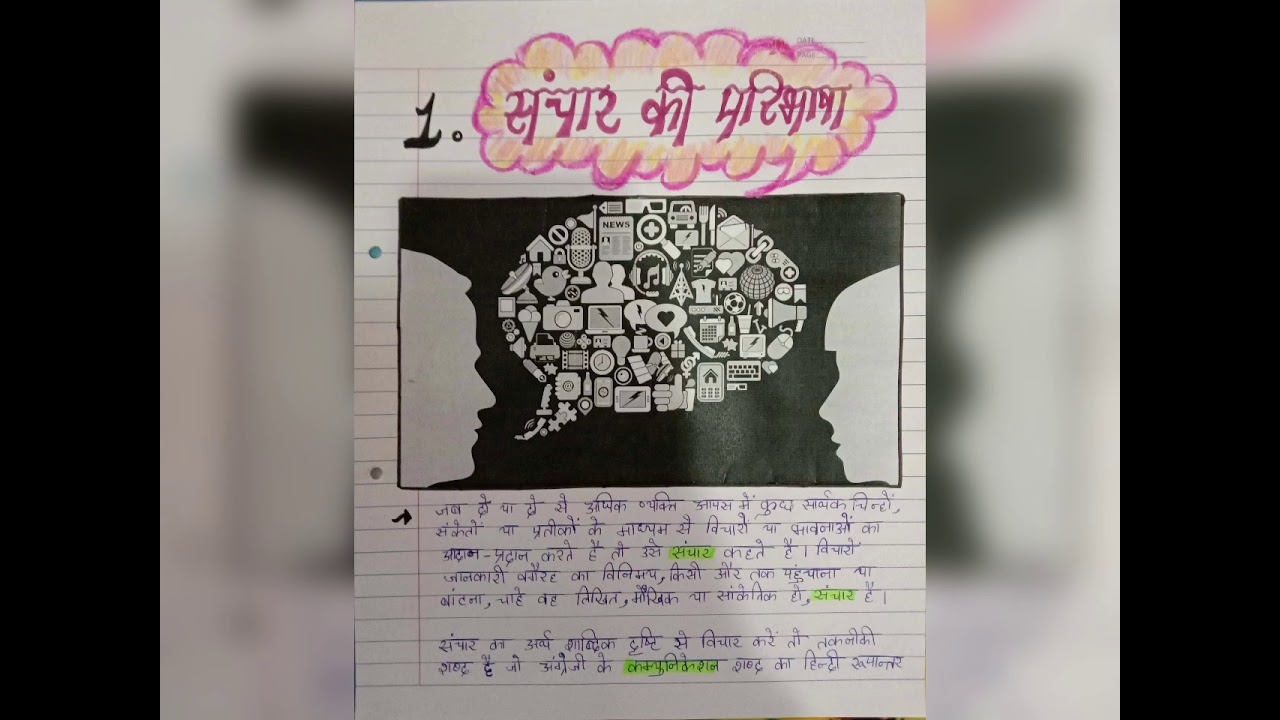 DATE
PAGE
1. संचार की परिभाषा
NEWS
→ जब दो या दो से अधिक व्यक्ति आपस में कुछ सार्थक चिन्हों,
संकेतों या प्रतीकों के माध्यम से विचारों या भावनाओं का
आदान-प्रदान करते है तो उसे संचार कहते है। विचारों
जानकारी वगैरह का विनिमय, किसी और तक पहुंचाना या
बांटना, चाहे वह लिखित, मौखिक या सांकेतिक हो, संचार है।
संचार का अर्थ शाब्दिक दृष्टि से विचार करें तो तकनीकी
शब्द है जो अंग्रेजी के कम्युनिकेशन शब्द का हिन्दी रूपान्तर